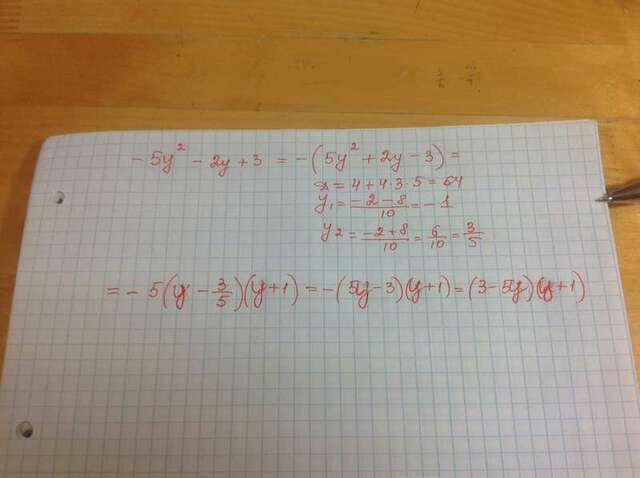 - 5y² - 2y + 3 = -(5y² + 2y - 3) =
D = 4 + 4·3·5 = 64
y₁ = (-2-8)/10 = -1
y₂ = (-2+8)/10 = 6/10 = 3/5
= - 5(y - 3/5)(y+1) = -(5y-3)(y+1) = (3-5y)(y+1)